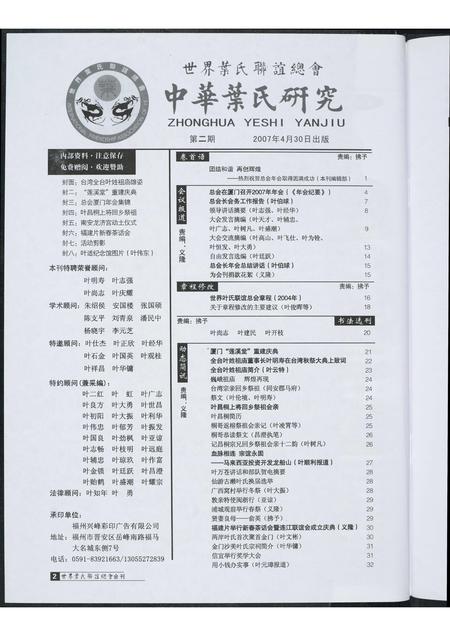 世界葉氏聯誼總會
中華葉氏研究
ZHONGHUA YESHI YANJIU
第二期 2007年4月30日出版
内部资料·注意保存
免费赠阅·欢迎赞助
封面：台湾全台叶姓祖庙雄姿
封二：“莲溪堂”重建庆典
封三：总会厦门年会集锦
封四：叶昌桐上将回乡祭祖
封五：南安龙济宫动土仪式
封六：福建片新春茶话会
封七：活动剪影
封八：叶适纪念馆图片（叶伟东）
本刊特聘荣誉顾问：
叶明寿 叶志强
叶尚志 叶庆耀
学术顾问：朱绍侯 安国楼 张国硕
陈支平 刘青泉 潘民中
杨晓宇 李元芝
特邀顾问：叶仕杰 叶正欣 叶经华
叶石金 叶国英 叶观桂
叶祥昌 叶华镛
特约顾问（兼采编）：
叶二红 叶虹 叶广志
叶良方 叶大勇 叶世昌
叶初阳 叶大振 叶利华
叶伟忠 叶郁芳 叶振发
叶国良 叶劲枫 叶亚谅
叶志畅 叶枝明 叶远庭
叶辅忠 叶琼玖 叶作富
叶金锁 叶廷跃 叶昌澄
叶贻鹤 叶盛潮 叶耀宗
法律顾问：叶知年 叶勇
承印单位：
福州兴峰彩印广告有限公司
地址：福州市晋安区岳峰南路福马
大名城东侧7号
电话：0591-83921663/13055272839
2 世界葉氏聯誼總會会刊
卷首语 责编：拂予
团结和谐 再创辉煌
——热烈祝贺总会年会取得圆满成功（本刊编辑部） 1
会议报道
责编：义隆
总会在厦门召开2007年年会（《年会纪要》） 4
总会长会务工作报告（叶伯球） 5
领导讲话摘要（叶志强、叶经华） 8
大会发言摘编（叶天才、叶辅忠、
叶广志、叶树凡、叶盛潮） 9
大会交流摘编（叶高山、叶飞仕、叶为铨、
叶恒发、叶大勇） 13
自由发言选编（叶廷跃） 14
总会长年会总结讲话（叶伯球） 15
为会刊捐款花絮（义隆） 15
章程修改 责编：拂予
世界叶氏联谊总会章程（2004年） 16
关于章程修改的主要建议（叶俊晖等） 18
责编：拂予 书法选刊
叶尚志 叶建民 叶开枝 20
动态简讯
责编：义隆
厦门“莲溪堂”重建庆典 21
全台叶姓祖庙董事长叶明寿在台湾秋祭大典上致词 22
全台叶姓祖庙简介（叶云特） 23
巍峨祖庙 辉煌再现 24
台湾宗亲回乡祭祖（同安郡马府） 24
祭文（叶伦境、叶明寿） 24
叶昌桐上将回乡祭祖会亲 25
叶昌桐简历 25
桐哥返榕祭祖会亲记（叶凌霄等） 25
桐哥恭读祭文（昌澄执笔） 26
记昌桐宗兄回乡祭祖会亲十二韵（叶树凡） 26
血脉相连 宗谊永固
——马来西亚投资开发龙船山（叶顺利报道） 27
叶万苍讲话和部队贺电摘要 28
仙游古濑叶氏换届选举 28
广西窝村举行冬祭（叶大振） 28
敦亲特使闽浙行（亚谅） 29
浦城观前举行春祭（义隆） 29
贤妻良母——俞英（拂予） 29
福建片举行新春茶话会暨连江联谊会成立庆典（义隆） 30
两岸叶氏首次聚首金门（叶文彬） 30
金门沙美叶氏宗祠简介（叶华镛） 31
信宜举行奖学大会 31
用小钱办实事（叶元璋报道） 32